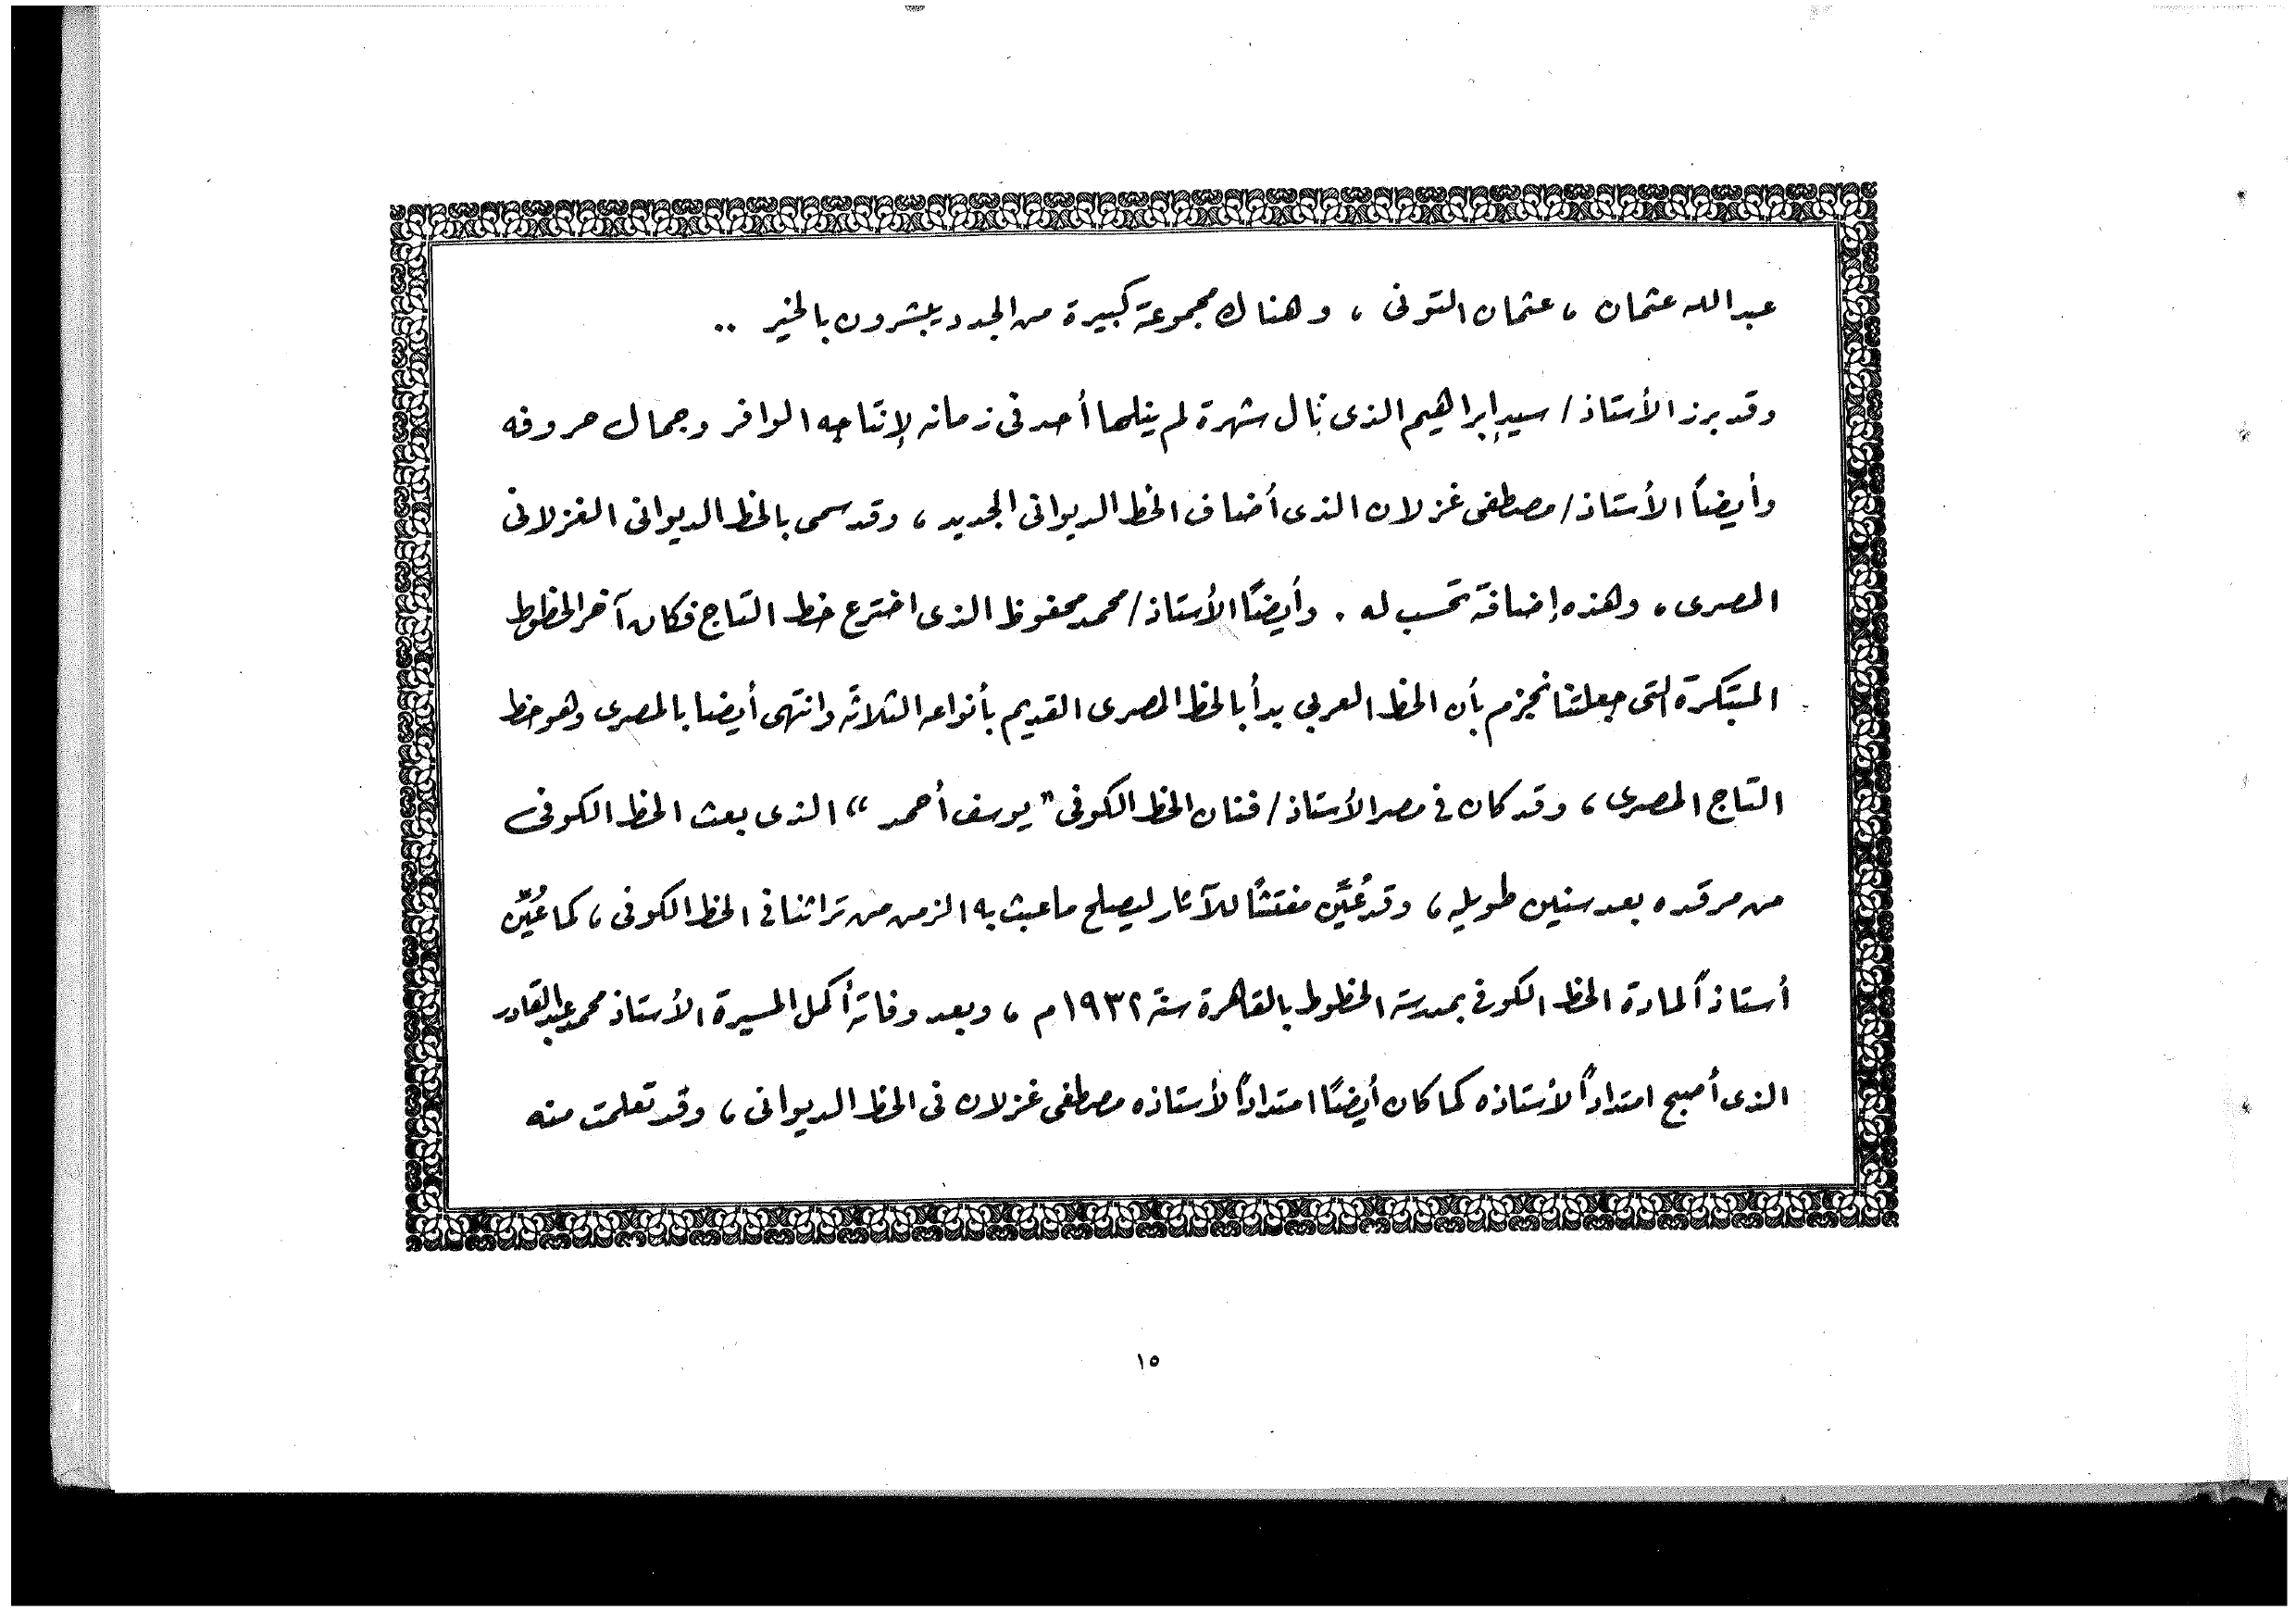 عبدالله عثمان ، عثمان التونى ، وهناك مجموعة كبيرة من الجدد يبشرون بالخير ..
وقد برز الأستاذ / سيد إبراهيم الذى نال شهرة لم ينلها أحد فى زمانه لإنتاجه الوافر وجمال حروفه
وأيضاً الأستاذ / مصطفى غزلان الذى أضاف الخط الديوانى الجديد ، وقد سمى بالخط الديوانى الغزلانى
المصرى ، وهذه إضافة تحسب له . وأيضًا الأستاذ / محمد محفوظ الذى اخترع خط التاج فكان آخر الخطوط
المبتكرة التى جعلتنا نجزم بأن الخط العربى بدأ بالخط المصرى القديم بأنواعه الثلاثة وانتهى أيضا بالمصرى وهو خط
التاج المصرى ، وقد كان فى مصر الأستاذ / فنان الخط الكوفى " يوسف أحمد " الذى بعث الخط الكوفى
من مرقده بعد سنين طويله ، وقد عُيَّن مفتشًا للآثار ليصلح ما عبث به الزمن من تراثنا فى الخط الكوفى ، كما عُيِّن
أستاذاً لمادة الخط الكوفى بمدرسة الخطوط بالقاهرة سنة ١٩٣٢ م ، وبعد وفاته أكمل المسيرة الأستاذ محمد عبدالقادر
الذى أصبح امتداداً لأستاذه كما كان أيضًا امتداداً لأستاذه مصطفى غزلان فى الخط الديوانى ، وقد تعلمت منه
١٥